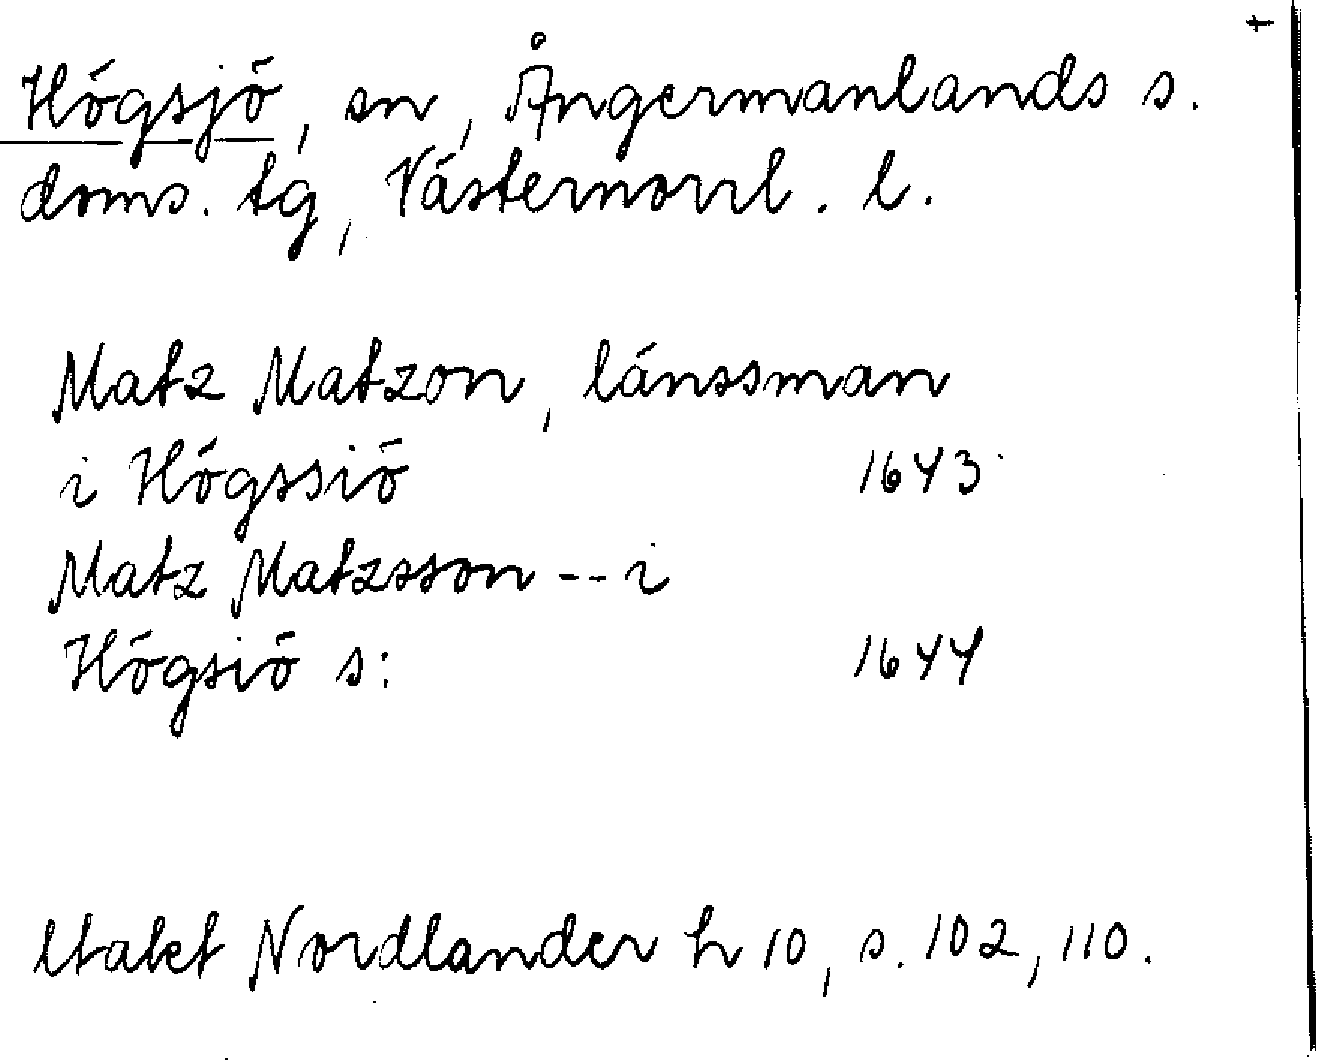 Högsjö, sn, Ångermanlands s.
doms. tg, Västernorrl. l.
Matz Matzon, länssman
i Högssiö 1643
Matz Matzsson -- i
Högsiö s: 1644
Nordlander h 10, s. 102, 110.